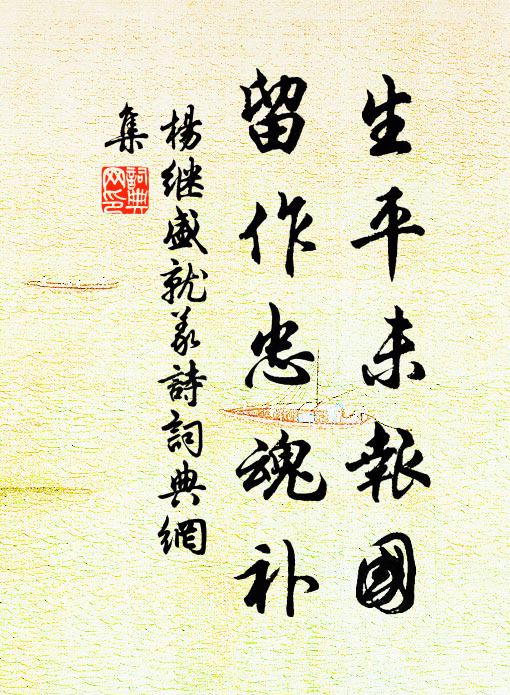 生平未報國
留作忠魂补
楊继盛就义詩詞典網
集
詞典
网印